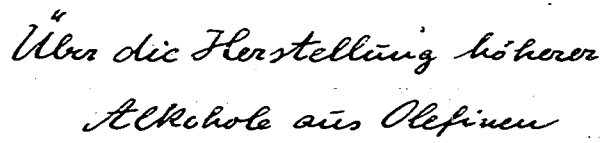 Über die Herstellung höherer
Alkohole aus Olefinen